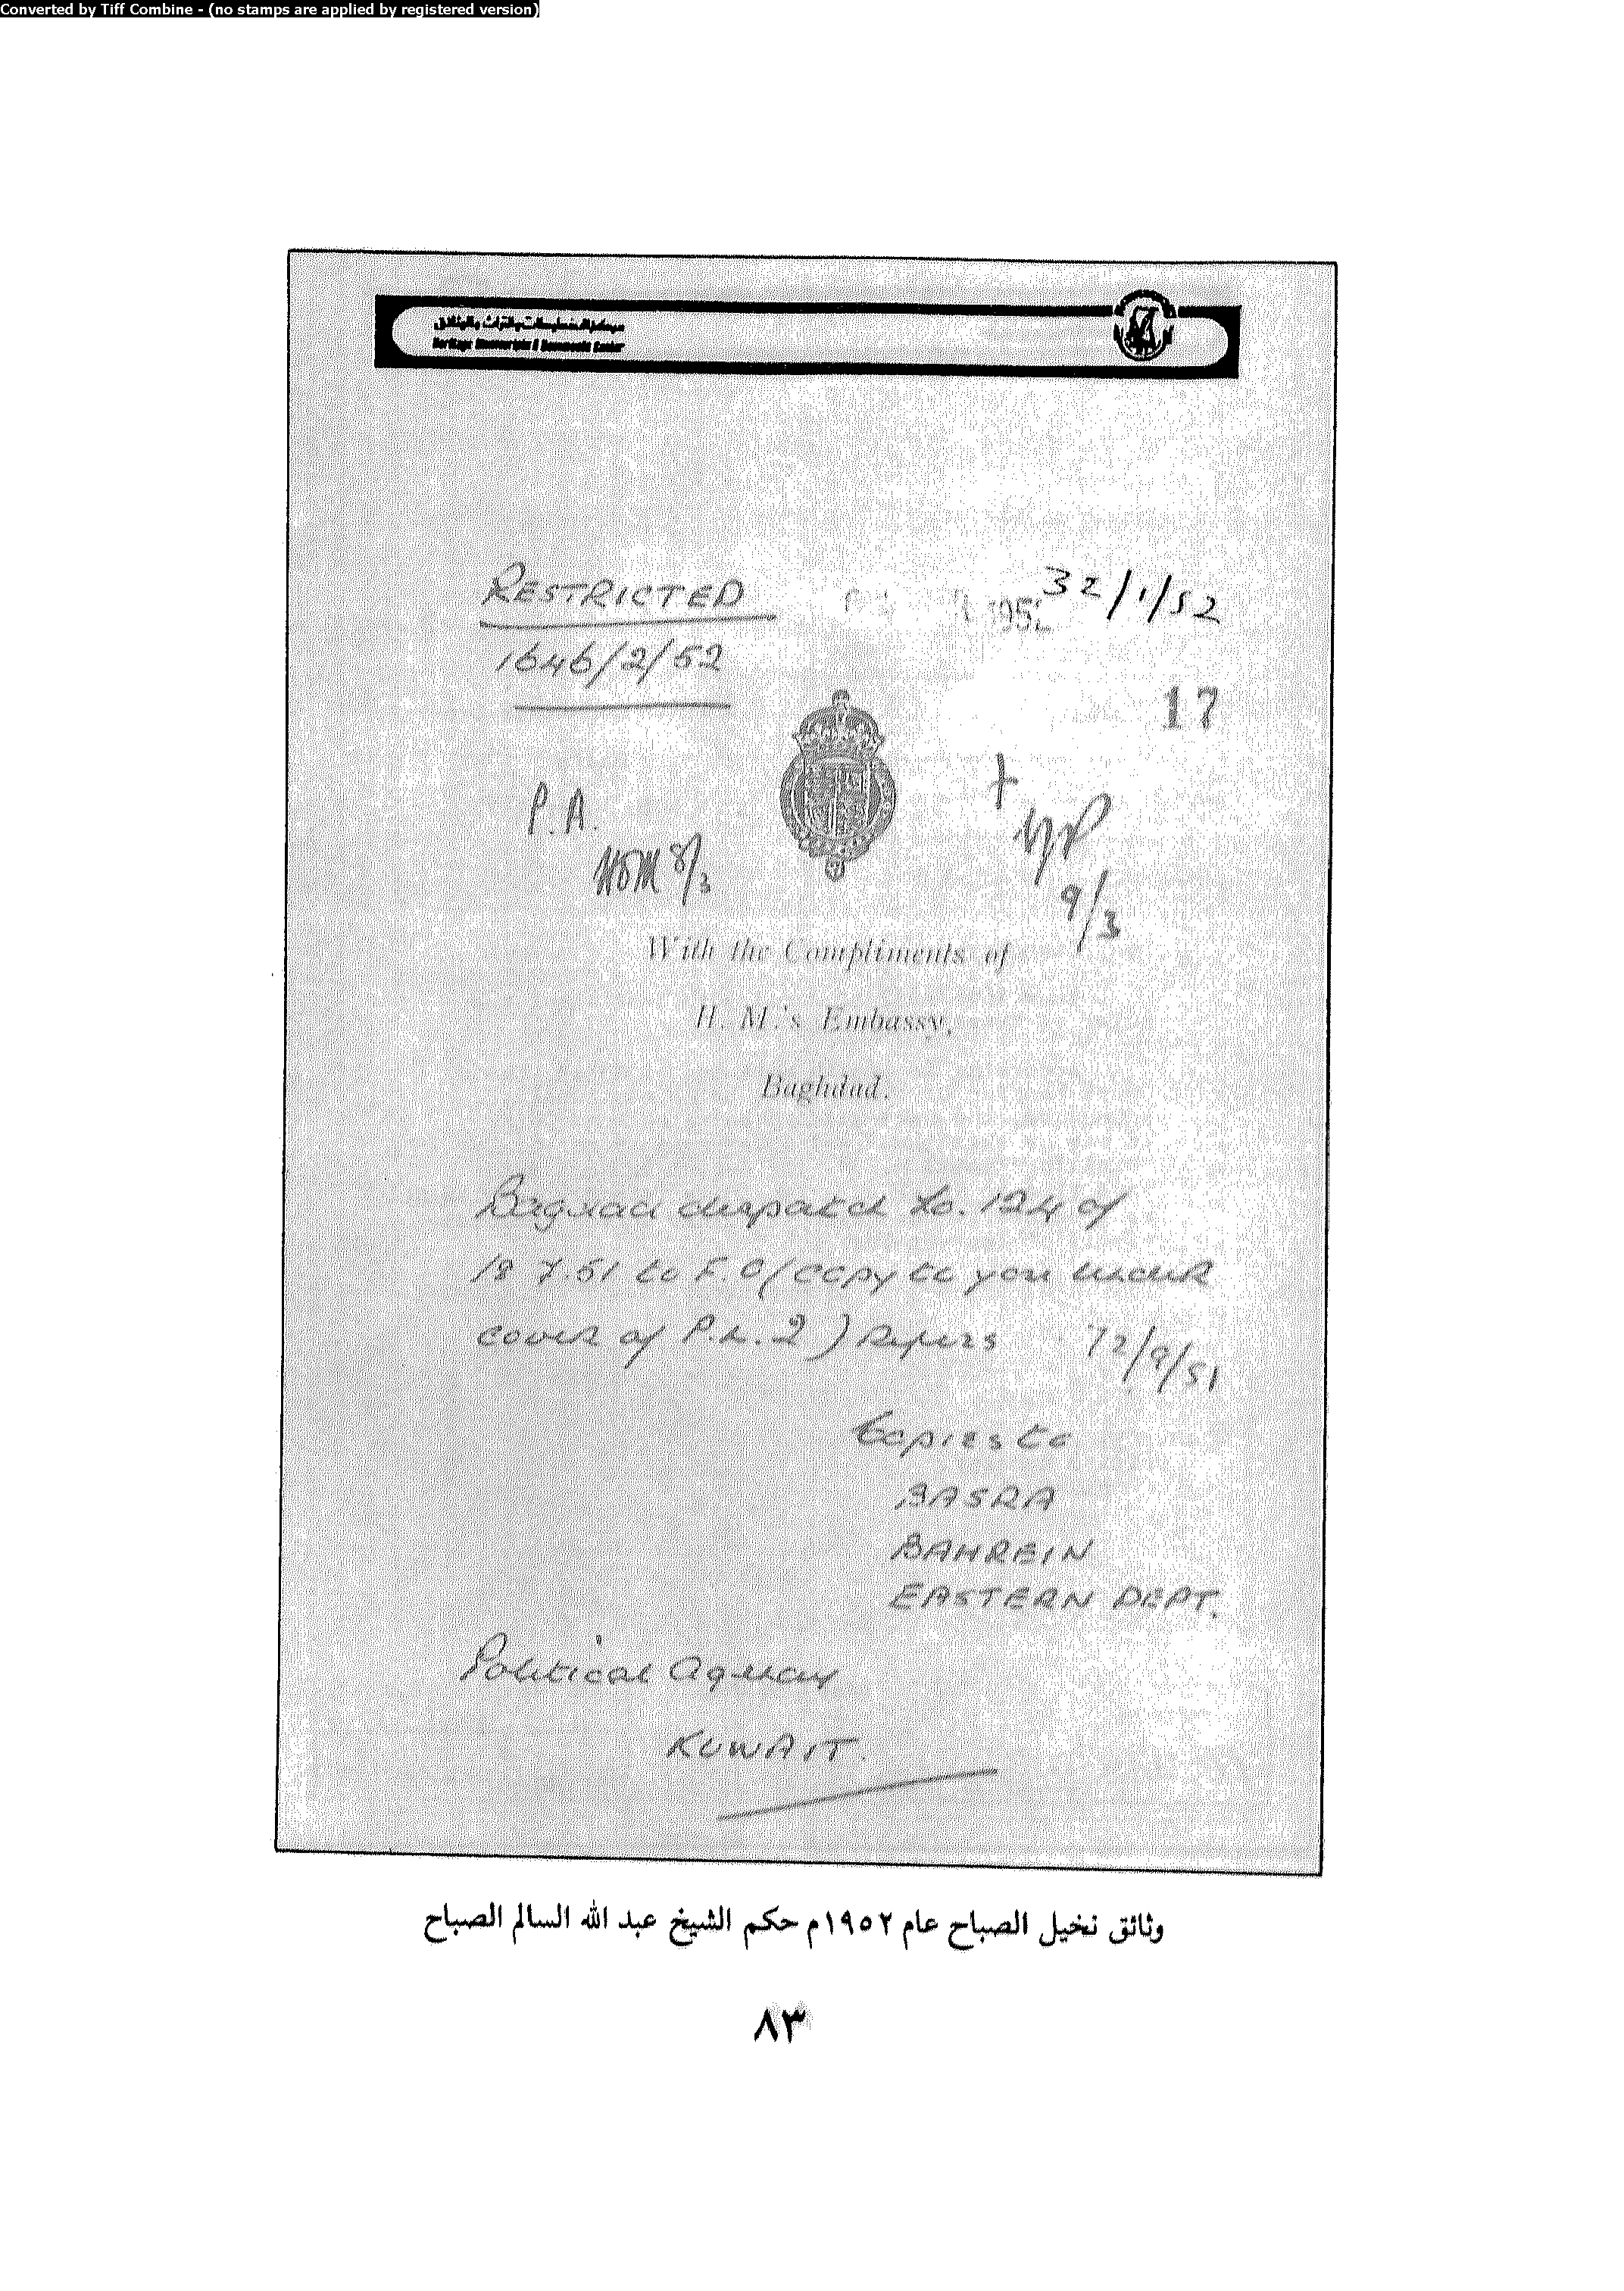 Converted by Tiff Combine - (no stamps are applied by registered version)
مركز المخطوطات والتراث والوثائق
Heritage Manuscripts & Documents Center
RESTRICTED
32/1/52
1952
1646/2/52
17
P.A.
8/3
9/3
With the Compliments of
H. M.'s Embassy,
Baghdad.
Bagdad despatch No. 124 of
18 7.51 to F.O (copy to you under
cover of P.L. 2) refers
72/9/51
Copies to
BASRA
BAHREIN
EASTERN DEPT.
Political Agency
KUWAIT.
وثائق نخيل الصباح عام ١٩٥٢م حكم الشيخ عبد الله السالم الصباح
٨٣